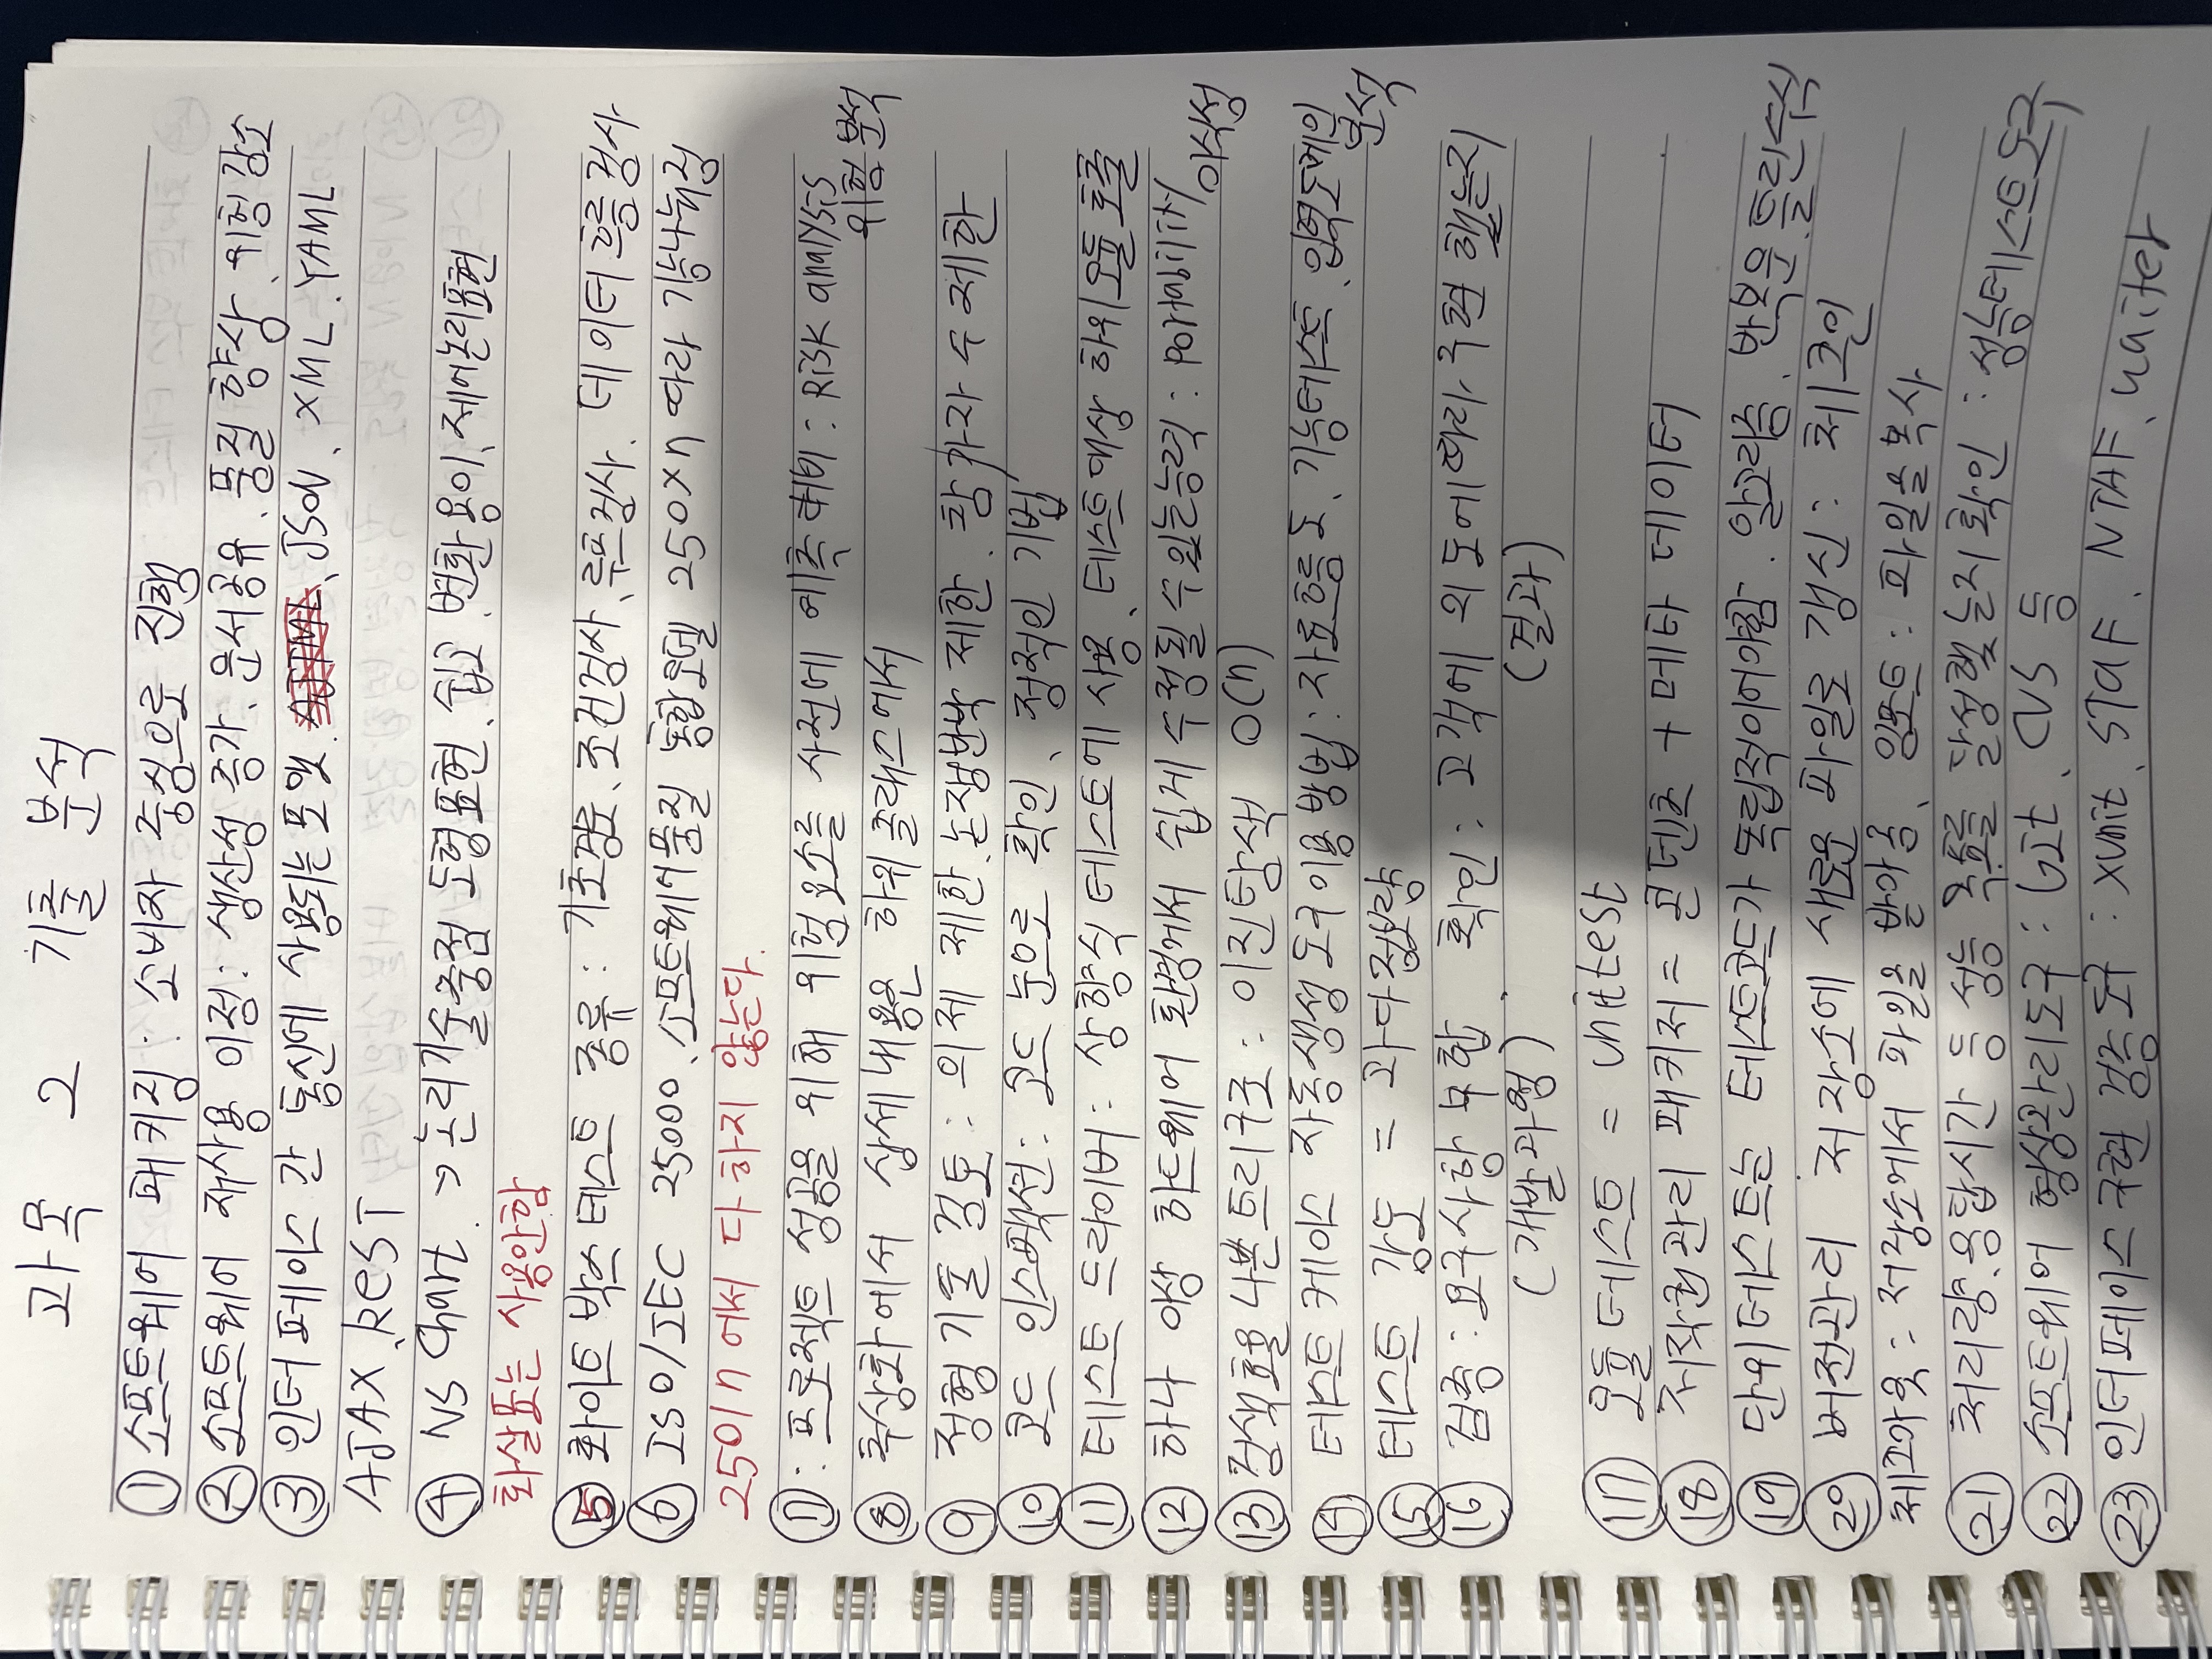 과목 2 기출 분석
① 소프트웨어 패키징 : 소비자 중심으로 진행
② 소프트웨어 재사용 이점 : 생산성 증가, 문서공유, 품질 향상, 위험감소
③ 인터페이스 간 통신에 사용되는 포맷. JSON, XML, YAML
AJAX, REST
④ NS Chart. → 논리기술중점 도형표현, 쉽고, 변환용이, 제어논리표현
화살표는 사용안함
⑤ 화이트 박스 테스트 종류 : 기초경로, 조건검사, 루프검사, 데이터 흐름 검사
⑥ ISO/IEC 25000, 소프트웨어품질 통합모델 250×n 따라 기능나눠짐
2501n 에서 다 하지 않는다.
⑦ : 프로젝트 성공을 위해 위험요소를 사전에 예측 대비 : Risk analysis
위험 분석
⑧ 추상화에서 상세내용은 하위클래스에서
⑨ 정형 기술 검토 : 의제 제한, 논쟁반박 제한, 참가자 수 제한
⑩ 코드 인스펙션 : 코드 눈으로 확인, 정적인 기법
⑪ 테스트 드라이버 : 상향식 테스트에 사용, 테스트대상 하위모듈 호출
⑫ 하나 이상 하드웨어 환경에서 쉽게 수정될 수 있는능력 : Portability/이식성
⑬ 검색효율 나쁜트리구조 : 이진탐색 O(n)
⑭ 테스트 케이스 자동생성 도구 이용 방법 : 자료흐름도, 기능테스트, 입력도메인 분석
⑮ 테스트 강도 = 과다정보량
⑯ 검증 : 요구사항 부합 확인 : 고객에 의도에따라 구현 했는지
(개발과정) (결과)
⑰ 모듈 테스트 = unitest
⑱ 저작권관리 패키저 = 콘텐츠 + 메타 데이터
⑲ 단위테스트는 테스트코드가 독립적이어야함. 알고리즘, 반복문 틀린수식
⑳ 버전관리 저장소에 새로운 파일로 갱신 : 체크인
체크아웃 : 저장소에서 파일을 받아옴, 임포트 : 파일을 복사
㉑ 처리량, 응답시간 등 성능 목표를 달성했는지 확인 : 성능테스트도구
㉒ 소프트웨어 형상관리도구 : Git, CVS 등
㉓ 인터페이스 구현 검증 도구 : xunit, STAF, NTAF, waiter